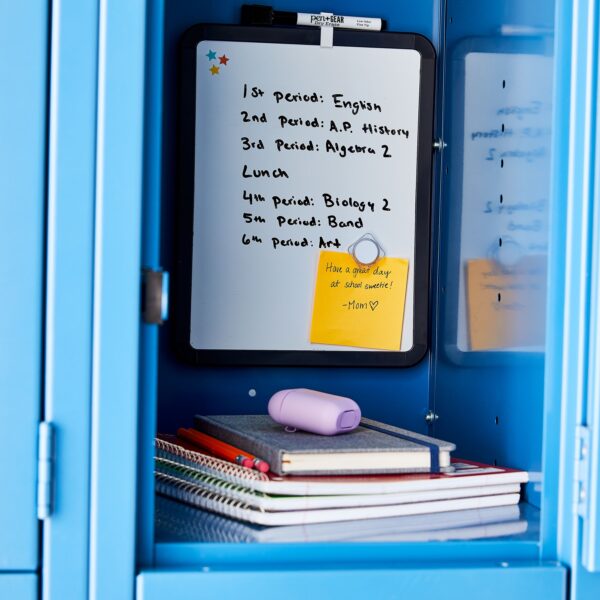 pen+GEAR
Dry Erase
1st period: English
2nd period: A.P. History
3rd period: Algebra 2
Lunch
4th period: Biology 2
5th period: Band
6th period: Art
Have a great day
at school sweetie!
-Mom♡